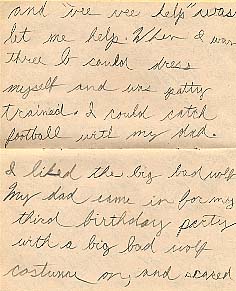 and "vee vee help" was
let me help. When I was
three I could dress
myself and was potty
trained. I could catch
football with my dad.
I liked the big bad wolf
My dad came in for my
third birthday party
with a big bad wolf
costume on, and scared